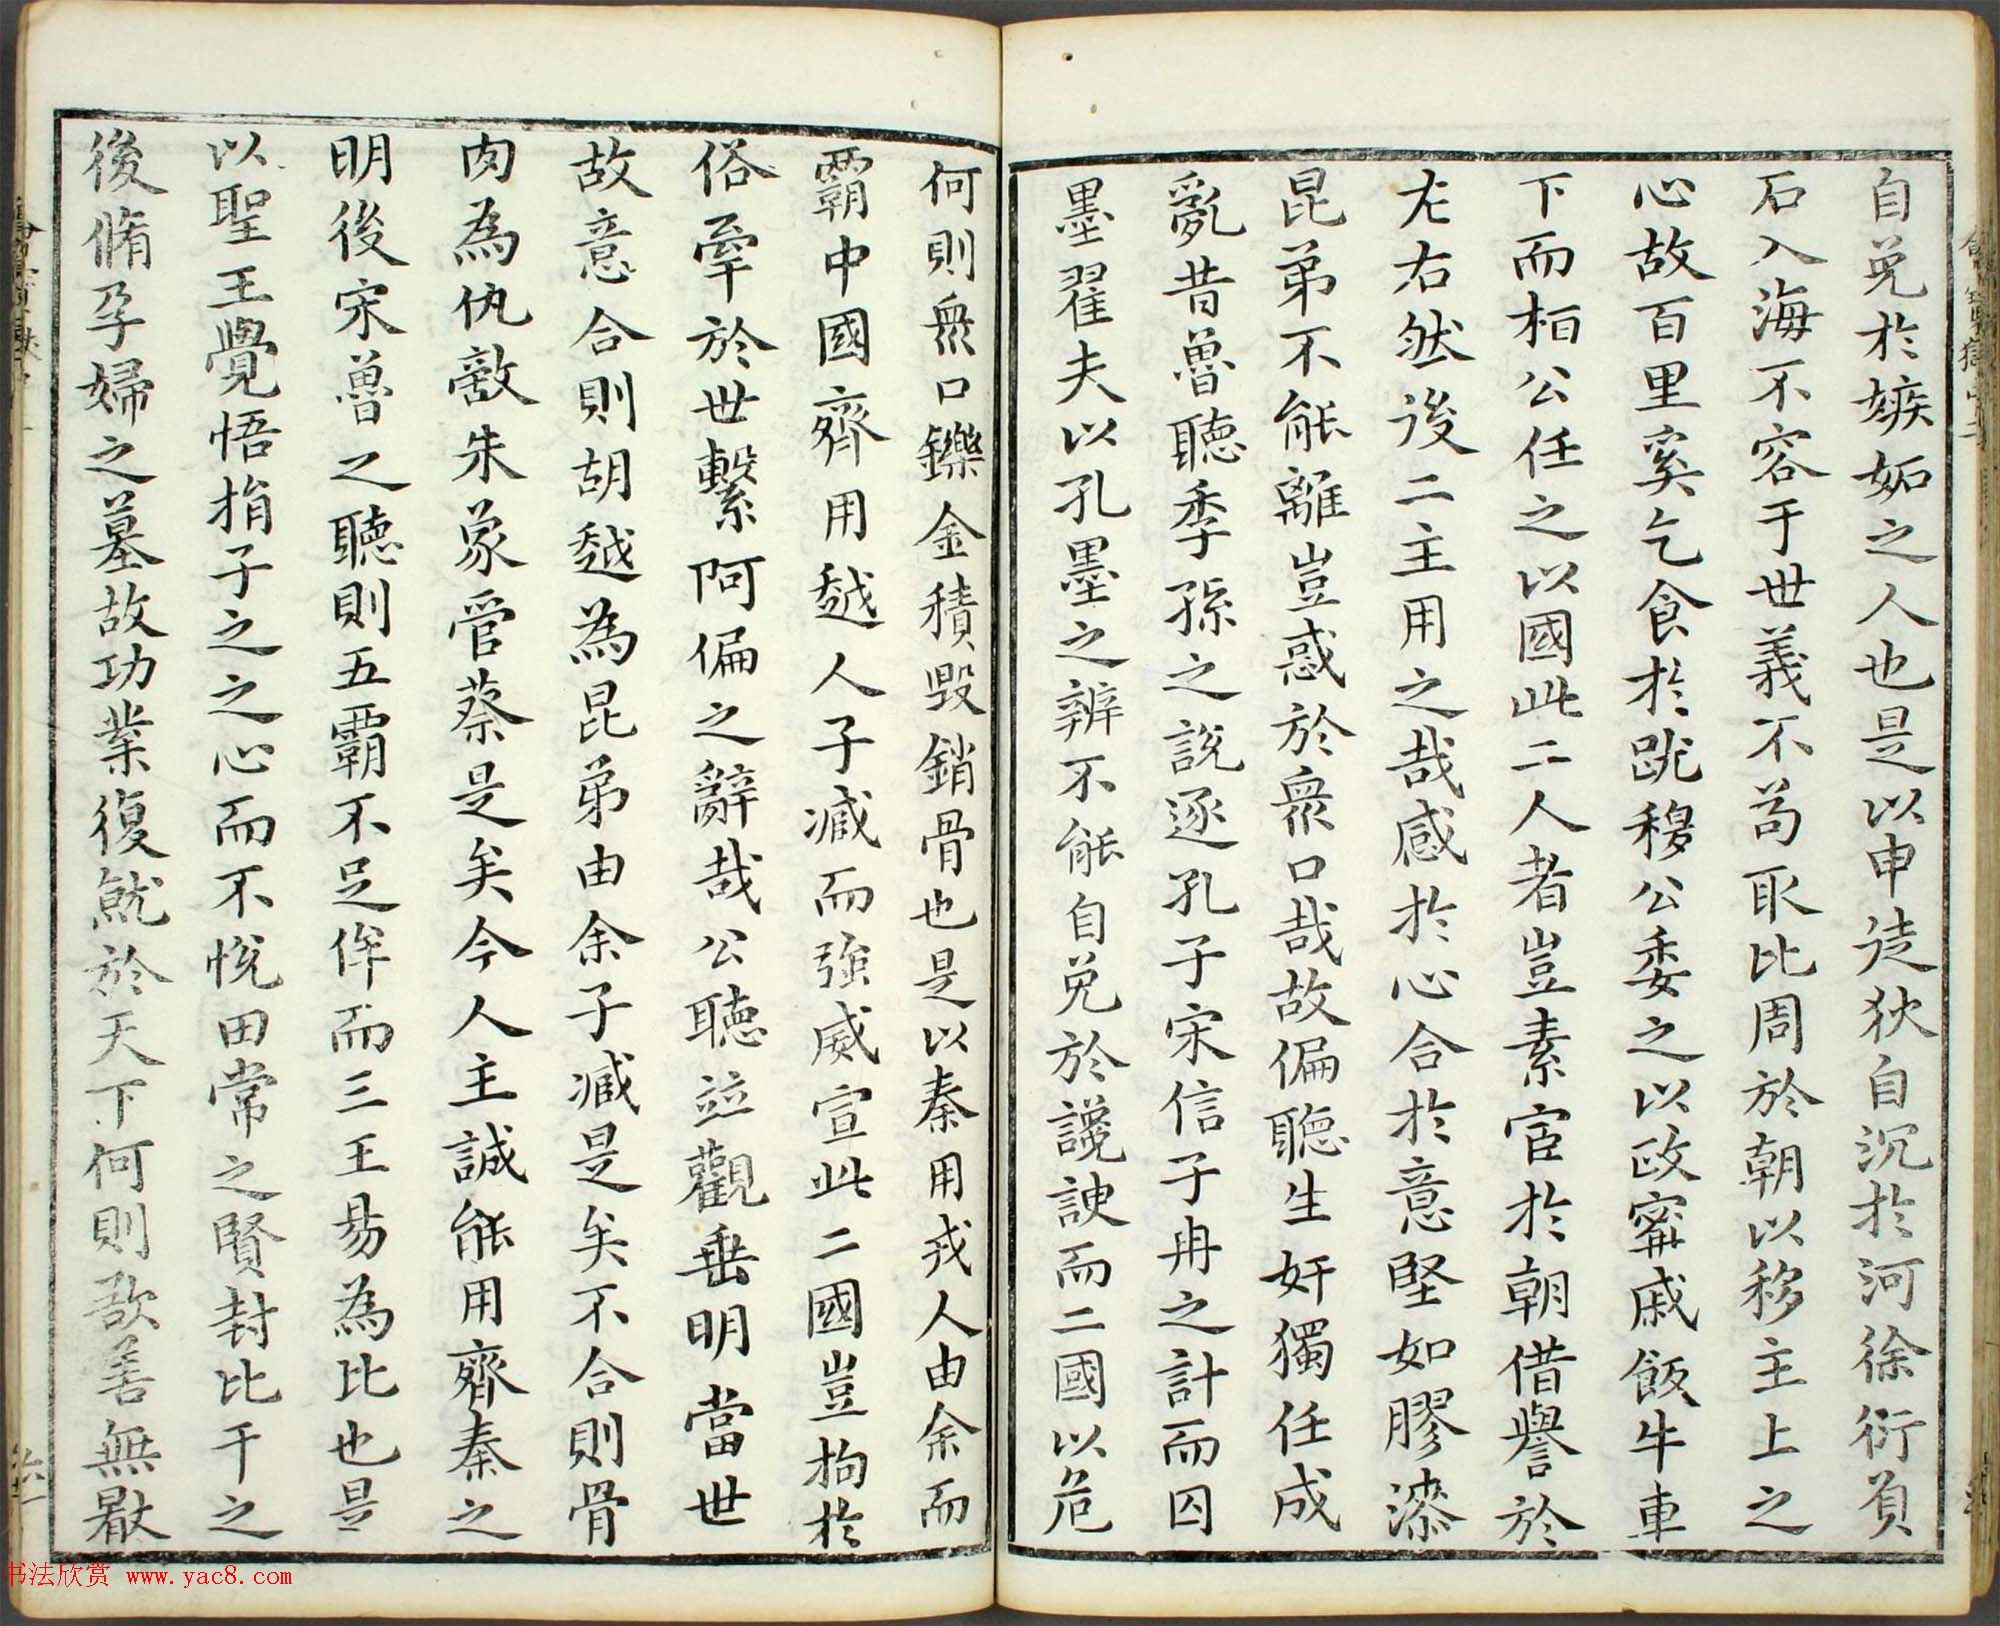 自免於嫉妬之人也是以申徒狄自沉於河徐衍負
石入海不容于世義不苟取比周於朝以移主上之
心故百里奚乞食於路穆公委之以政甯戚飯牛車
下而栢公任之以國此二人者豈素宦於朝借譽於
左右然後二主用之哉感於心合於意堅如膠漆
昆弟不能離豈惑於衆口哉故偏聽生奸獨任成
亂昔魯聽季孫之說逐孔子宋信子冉之計而囚
墨翟夫以孔墨之辨不能自免於讒諛而二國以危
何則衆口鑠金積毀銷骨也是以秦用戎人由余而
霸中國齊用越人子臧而強威宣此二國豈拘於
俗牽於世繫阿偏之辭哉公聽竝觀垂明當世
故意合則胡越為昆弟由余子臧是矣不合則骨
肉為仇敵朱象管蔡是矣今人主誠能用齊秦之
明後宋魯之聽則五霸不足侔而三王易為比也是
以聖王覺悟捐子之之心而不悅田常之賢封比干之
後脩孕婦之墓故功業復就於天下何則欲善無厭
书法欣赏 www.yac8.com